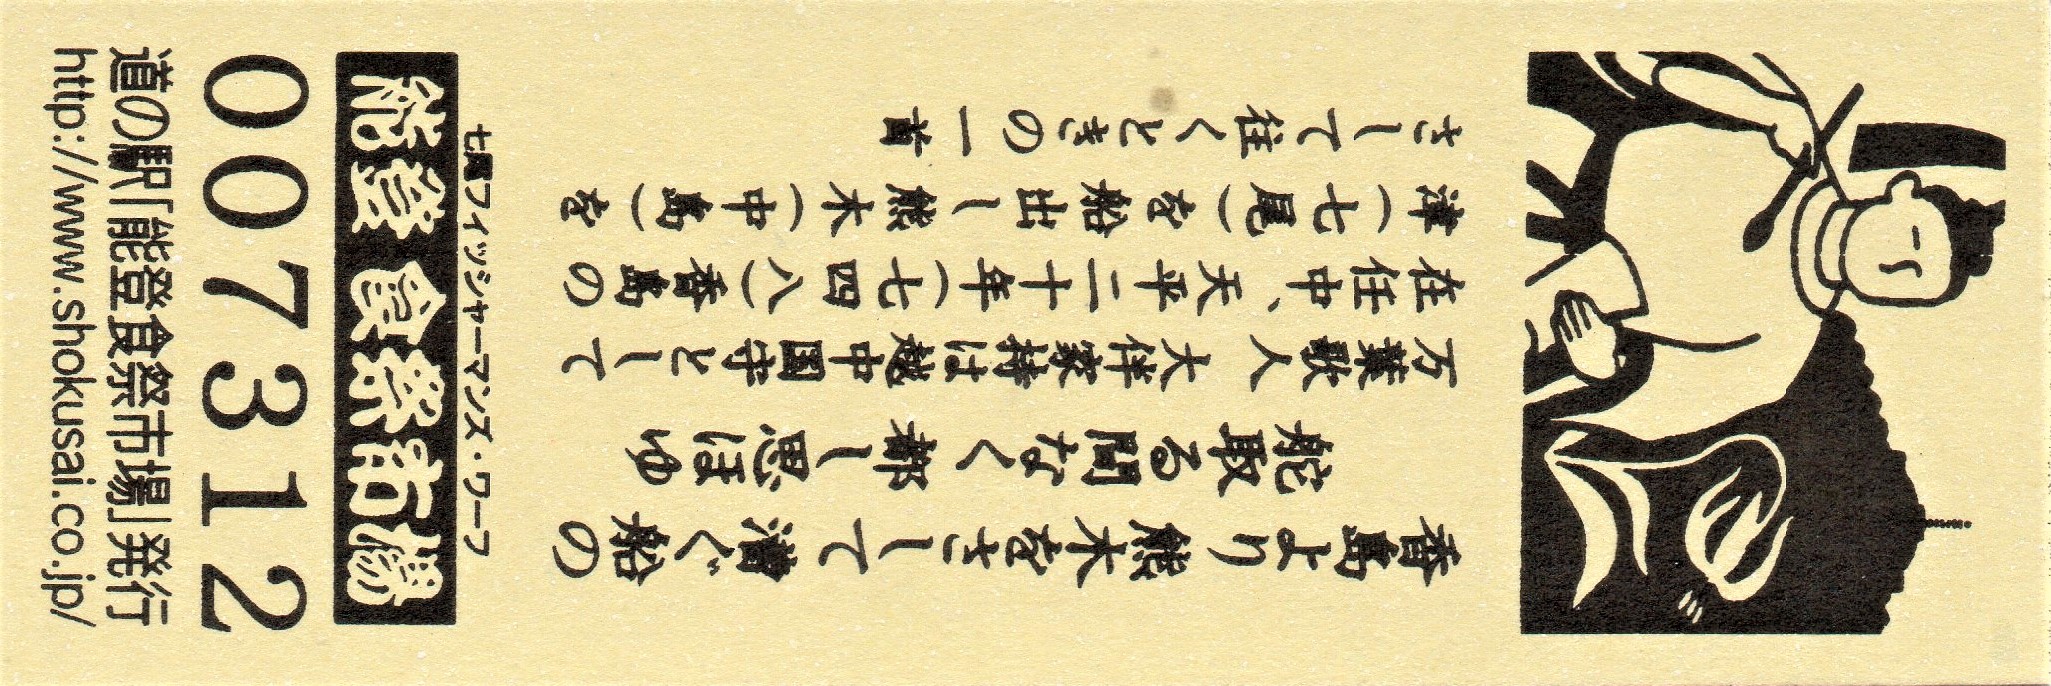 香島より熊木をさして漕ぐ船の
舵取る間なく都し思ほゆ
万葉歌人 大伴家持は越中国守として
在任中、天平二十年(七四八)香島の
津(七尾)を船出し熊木(中島)を
さして往くときの一首
七尾フィッシャーマンズ・ワーフ
能登食祭市場
007312
道の駅「能登食祭市場」発行
http://www.shokusai.co.jp/